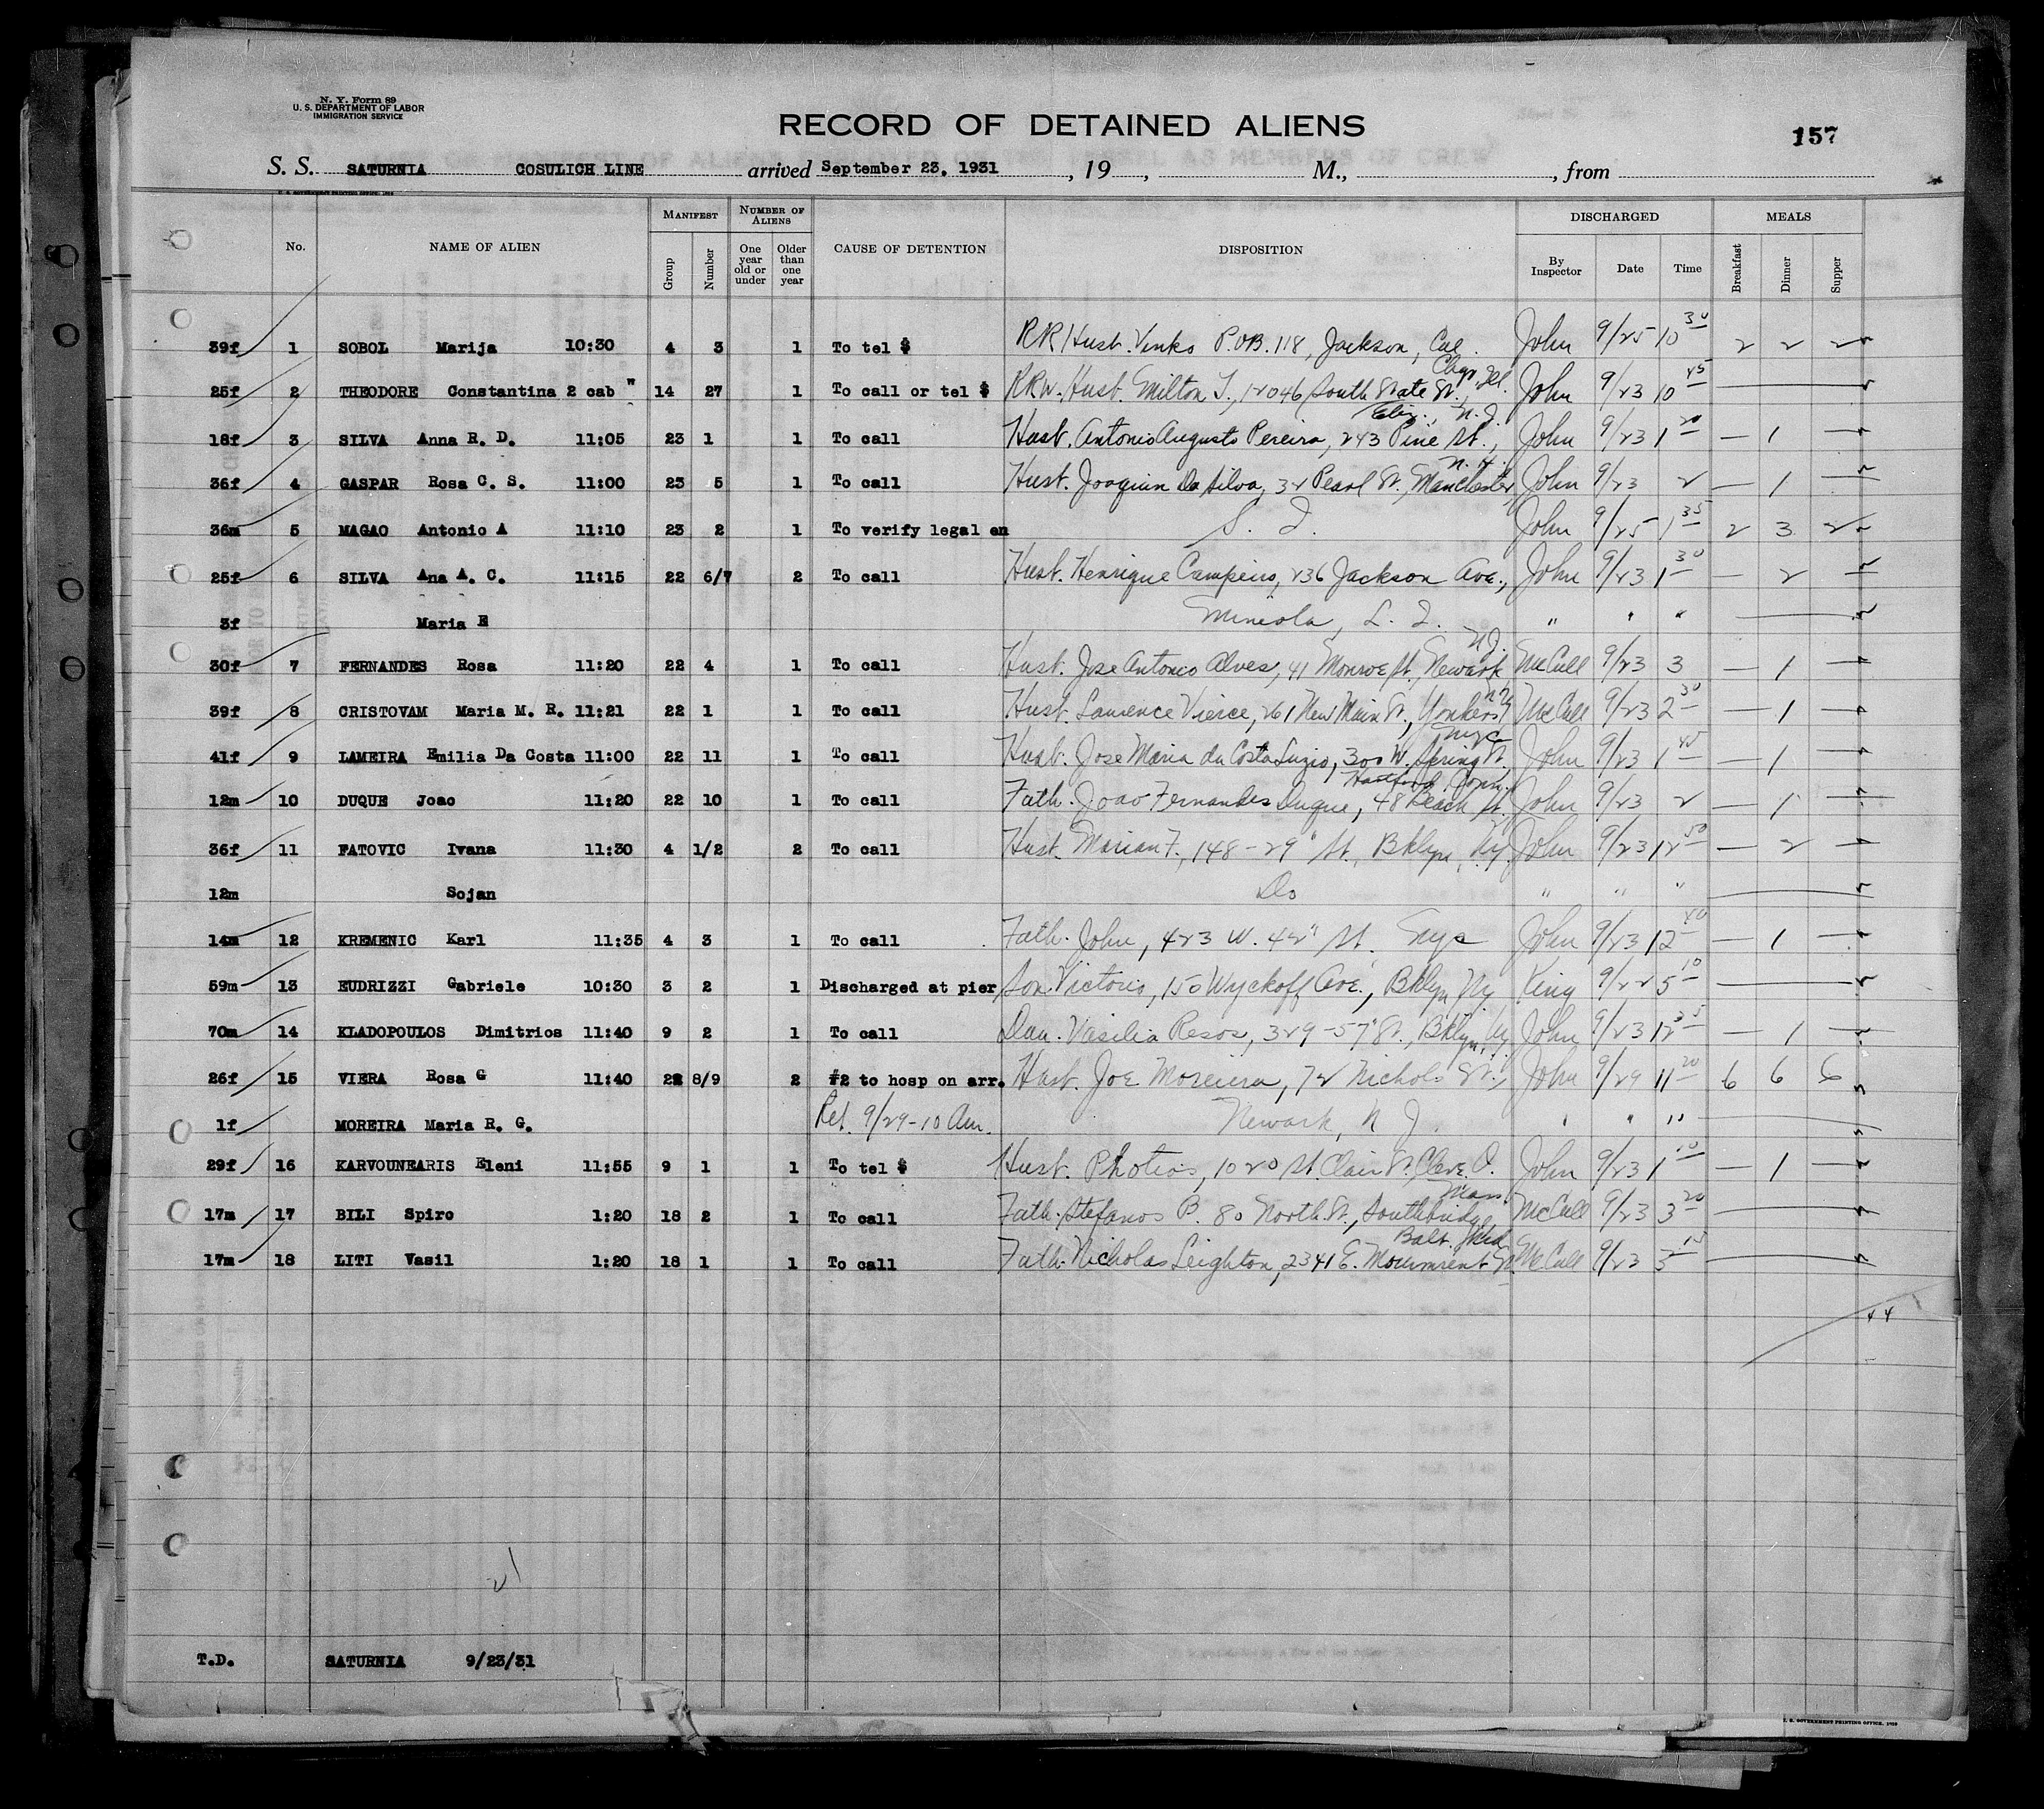 N. Y. Form 89
U. S. DEPARTMENT OF LABOR
IMMIGRATION SERVICE
RECORD OF DETAINED ALIENS
157
S. S. SATURNIA COSULICH LINE arrived September 23, 1931, 19 , M., , from
No. NAME OF ALIEN MANIFEST Group Number NUMBER OF ALIENS One year old or under Older than one year CAUSE OF DETENTION DISPOSITION DISCHARGED By Inspector Date Time MEALS Breakfast Dinner Supper
39f 1 SOBOL Marija 10:30 4 3 1 To tel $ RR Hust. Vinko P.O.B. 118, Jackson, Cal. John 9/25 10 30 2 2 2
Chgo Ill.
25f 2 THEODORE Constantina 2 cab " 14 27 1 To call or tel $ RRW. Hust. Milton T., 12046 South State St., John 9/23 10 45 —
Eliz., N.J.
18f 3 SILVA Anna R. D. 11:05 23 1 1 To call Hust. Antonio Augusto Pereira, 243 Pine St., John 9/23 1 20 — 1 —
N. H.
36f 4 GASPAR Rosa C. S. 11:00 23 5 1 To call Hust. Joaquim Da Silva, 32 Pearl St., Manchester, John 9/23 2 — 1 —
36m 5 MAGAO Antonio A 11:10 23 2 1 To verify legal en S. I. John 9/25 1 35 2 3 2
25f 6 SILVA Ana A. C. 11:15 22 6/7 2 To call Hust. Henrique Campeiro, 236 Jackson Ave., John 9/23 1 30 — 2 —
3f Maria E Mineola, L. I. " " " —
N.J.
30f 7 FERNANDES Rosa 11:20 22 4 1 To call Hust. Jose Antonio Alves, 41 Monroe St., Newark McCull 9/23 3 — 1 —
N.Y.
39f 8 CRISTOVAM Maria M. R. 11:21 22 1 1 To call Hust. Laurence Vierce, 261 New Main St., Yonkers McCull 9/23 2 30 — 1 —
NYC
41f 9 LAMEIRA Emilia Da Costa 11:00 22 11 1 To call Hust. Jose Maria da Costa Luzio, 300 W. Spring St. John 9/23 1 45 — 1 —
Hartford, Conn.
12m 10 DUQUE Joao 11:20 22 10 1 To call Fath. Joao Fernandes Duque, 48 Beach St. John 9/23 2 — 1 —
36f 11 FATOVIC Ivana 11:30 4 1/2 2 To call Hust. Marian F., 148 - 29" St., Bklyn, Ny. John 9/23 12 50 — 2 —
12m Sojan Do " " " —
14m 12 KREMENIC Karl 11:35 4 3 1 To call Fath. John, 423 W. 42" St. Nyc John 9/23 12 40 — 1 —
59m 13 EUDRIZZI Gabriele 10:30 3 2 1 Discharged at pier Son Victorio, 150 Wyckoff Ave., Bklyn Ny King 9/22 5 10 —
70m 14 KLADOPOULOS Dimitrios 11:40 9 2 1 To call Dau. Vasilia Resos, 329 - 57" St., Bklyn, Ny John 9/23 12 35 — 1 —
26f 15 VIERA Rosa G 11:40 22 8/9 2 #2 to hosp on arr. Hust. Joe Moreiera, 72 Nichols St., John 9/29 11 20 6 6 6
1f MOREIRA Maria R. G. Ret. 9/29-10 Am. Newark, N J. " " " —
29f 16 KARVOUNEARIS Eleni 11:55 9 1 1 To tel $ Hust. Photios, 1020 St. Clair St. Cleve. O. John 9/23 1 10 — 1 —
Mass
17m 17 BILI Spiro 1:20 18 2 1 To call Fath. Stefanos B. 80 North St., Southbridge McCull 9/23 3 20 —
Balt. Md
17m 18 LITI Vasil 1:20 18 1 1 To call Fath. Nicholas Leighton, 2341 E. Monument St. McCull 9/23 3 15 —
44
T.D. SATURNIA 9/23/31
U. S. GOVERNMENT PRINTING OFFICE